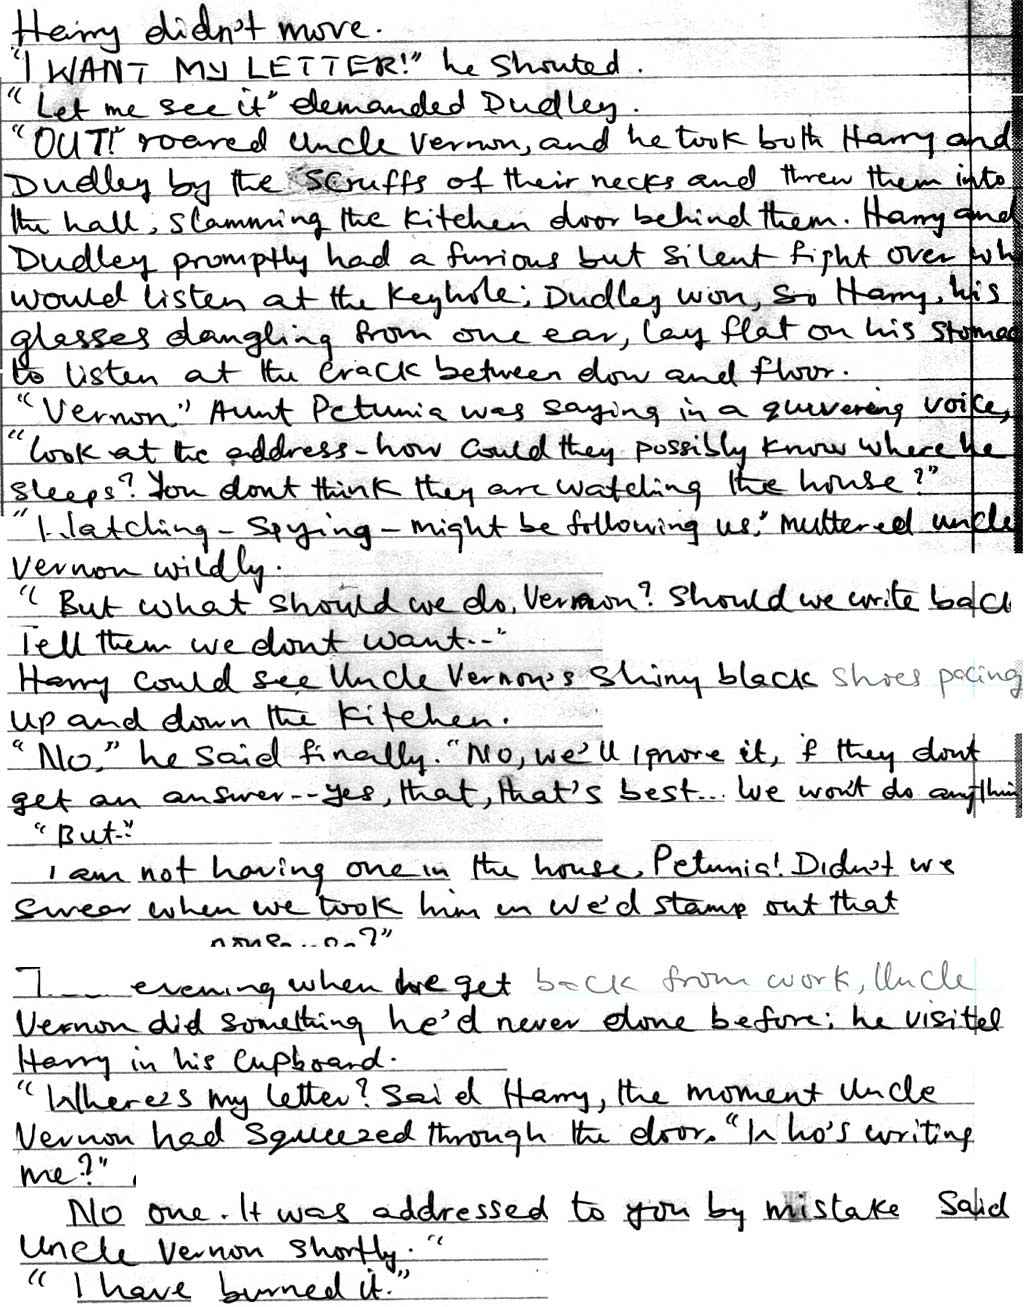 Harry didn't move.
"I WANT MY LETTER!" he shouted.
"Let me see it" demanded Dudley.
"OUT!" roared Uncle Vernon, and he took both Harry and
Dudley by the scruffs of their necks and threw them into
the hall, slamming the kitchen door behind them. Harry and
Dudley promptly had a furious but silent fight over wh
would listen at the keyhole; Dudley won, so Harry, his
glasses dangling from one ear, lay flat on his stomac
to listen at the crack between door and floor.
"Vernon," Aunt Petunia was saying in a quivering voice,
"look at the address - how could they possibly know where he
sleeps? You dont think they are watching the house?"
"Watching - Spying - might be following us," muttered uncle
Vernon wildly.
"But what should we do, Vernon? Should we write back
Tell them we dont want--"
Harry could see Uncle Vernon's shiny black shoes pacing
up and down the kitchen.
"No," he said finally. "No, we'll ignore it, if they dont
get an answer -- yes, that, that's best... We won't do anythin
"But--"
I am not having one in the house, Petunia! Didn't we
swear when we took him in we'd stamp out that
evening when he get back from work, Uncle
Vernon did something he'd never done before; he visited
Harry in his cupboard.
"Where's my letter? Said Harry, the moment Uncle
Vernon had squeezed through the door. "Who's writing
me?"
No one. It was addressed to you by mistake Said
Uncle Vernon shortly."
"I have burned it."